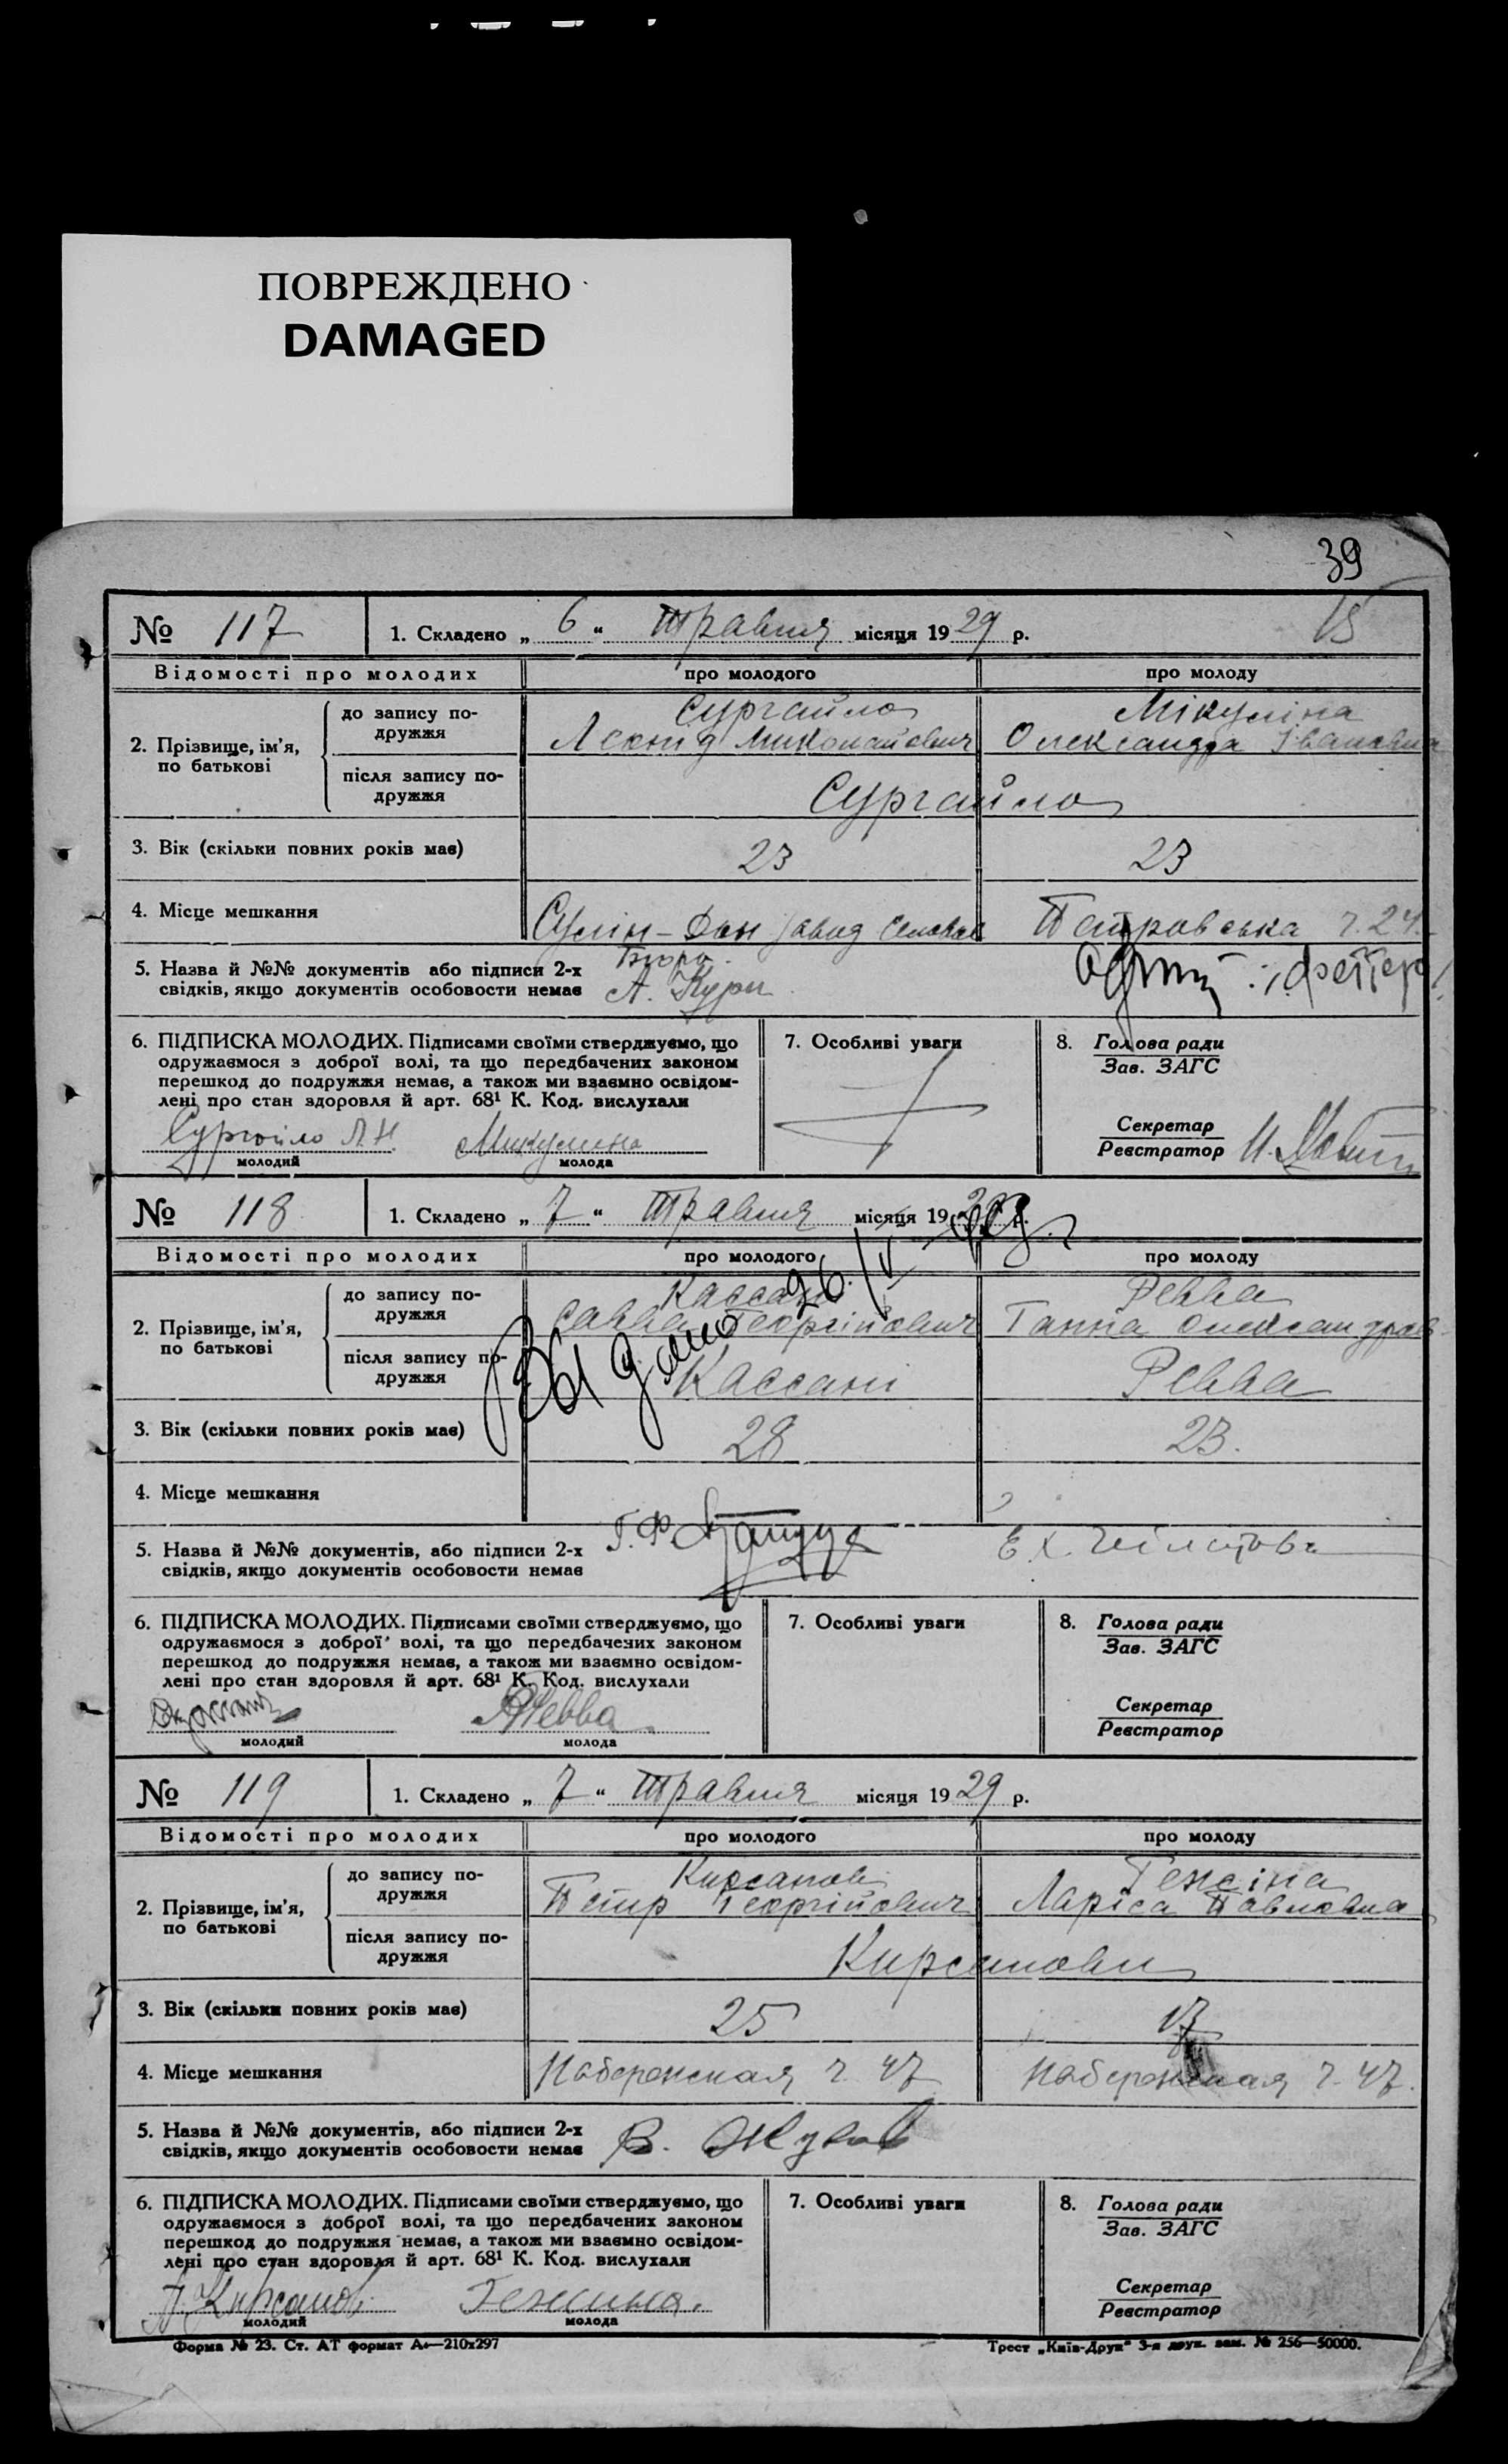 ПОВРЕЖДЕНО
DAMAGED
39
15
№ 117 1. Складено „ 6 “ Травня місяця 1929 р.
Відомості про молодих про молодого про молоду
2. Прізвище, ім'я, по батькові
до запису подружжя
Сургайло Мікуліна
Леонід Миколайович Олександра Івановна
після запису подружжя
Сургайло
3. Вік (скільки повних років має) 23 23
4. Місце мешкання Сулін-Дон завод Петровська ч. 24.
5. Назва й №№ документів або підписи 2-х
свідків, якщо документів особовости немає
Бюро
А.
6. ПІДПИСКА МОЛОДИХ. Підписами своїми стверджуємо, що
одружаємося з доброї волі, та що передбачених законом
перешкод до подружжя немає, а також ми взаємно освідом-
лені про стан здоровля й арт. 68¹ К. Код. вислухали
Сургайло Л.Н. Микулина
молодий молода
7. Особливі уваги
8. Голова ради
Зав. ЗАГС
Секретар
Реєстратор
№ 118 1. Складено „ 7 “ Травня місяця 1929 р.
Выдано 26/V-29 г.
Відомості про молодих про молодого про молоду
2. Прізвище, ім'я, по батькові
до запису подружжя
Кассані Ревва
Савва Георгійович Ганна Олександров
після запису подружжя
Кассані Ревва
3. Вік (скільки повних років має) 28 23.
4. Місце мешкання
5. Назва й №№ документів, або підписи 2-х
свідків, якщо документів особовости немає
Г. Ф.
Е. Х.
6. ПІДПИСКА МОЛОДИХ. Підписами своїми стверджуємо, що
одружаємося з доброї волі, та що передбачених законом
перешкод до подружжя немає, а також ми взаємно освідом-
лені про стан здоровля й арт. 68¹ К. Код. вислухали
Ревва
молодий молода
7. Особливі уваги
8. Голова ради
Зав. ЗАГС
Секретар
Реєстратор
№ 119 1. Складено „ 7 “ Травня місяця 1929 р.
Відомості про молодих про молодого про молоду
2. Прізвище, ім'я, по батькові
до запису подружжя
Кирсанов Генсіна
Петир Георгійович Ларіса Павловна
після запису подружжя
Кирсанови
3. Вік (скільки повних років має) 25 17
4. Місце мешкання Набережная ч. 47 Набережная ч. 47.
5. Назва й №№ документів, або підписи 2-х
свідків, якщо документів особовости немає
В. Жуков
6. ПІДПИСКА МОЛОДИХ. Підписами своїми стверджуємо, що
одружаємося з доброї волі, та що передбачених законом
перешкод до подружжя немає, а також ми взаємно освідом-
лені про стан здоровля й арт. 68¹ К. Код. вислухали
П. Кирсанов
молодий молода
7. Особливі уваги
8. Голова ради
Зав. ЗАГС
Секретар
Реєстратор
Форма № 23. Ст. АТ формат А4—210х297
Трест „Київ-Друк“ 3-я друк. зам. № 256—50000.